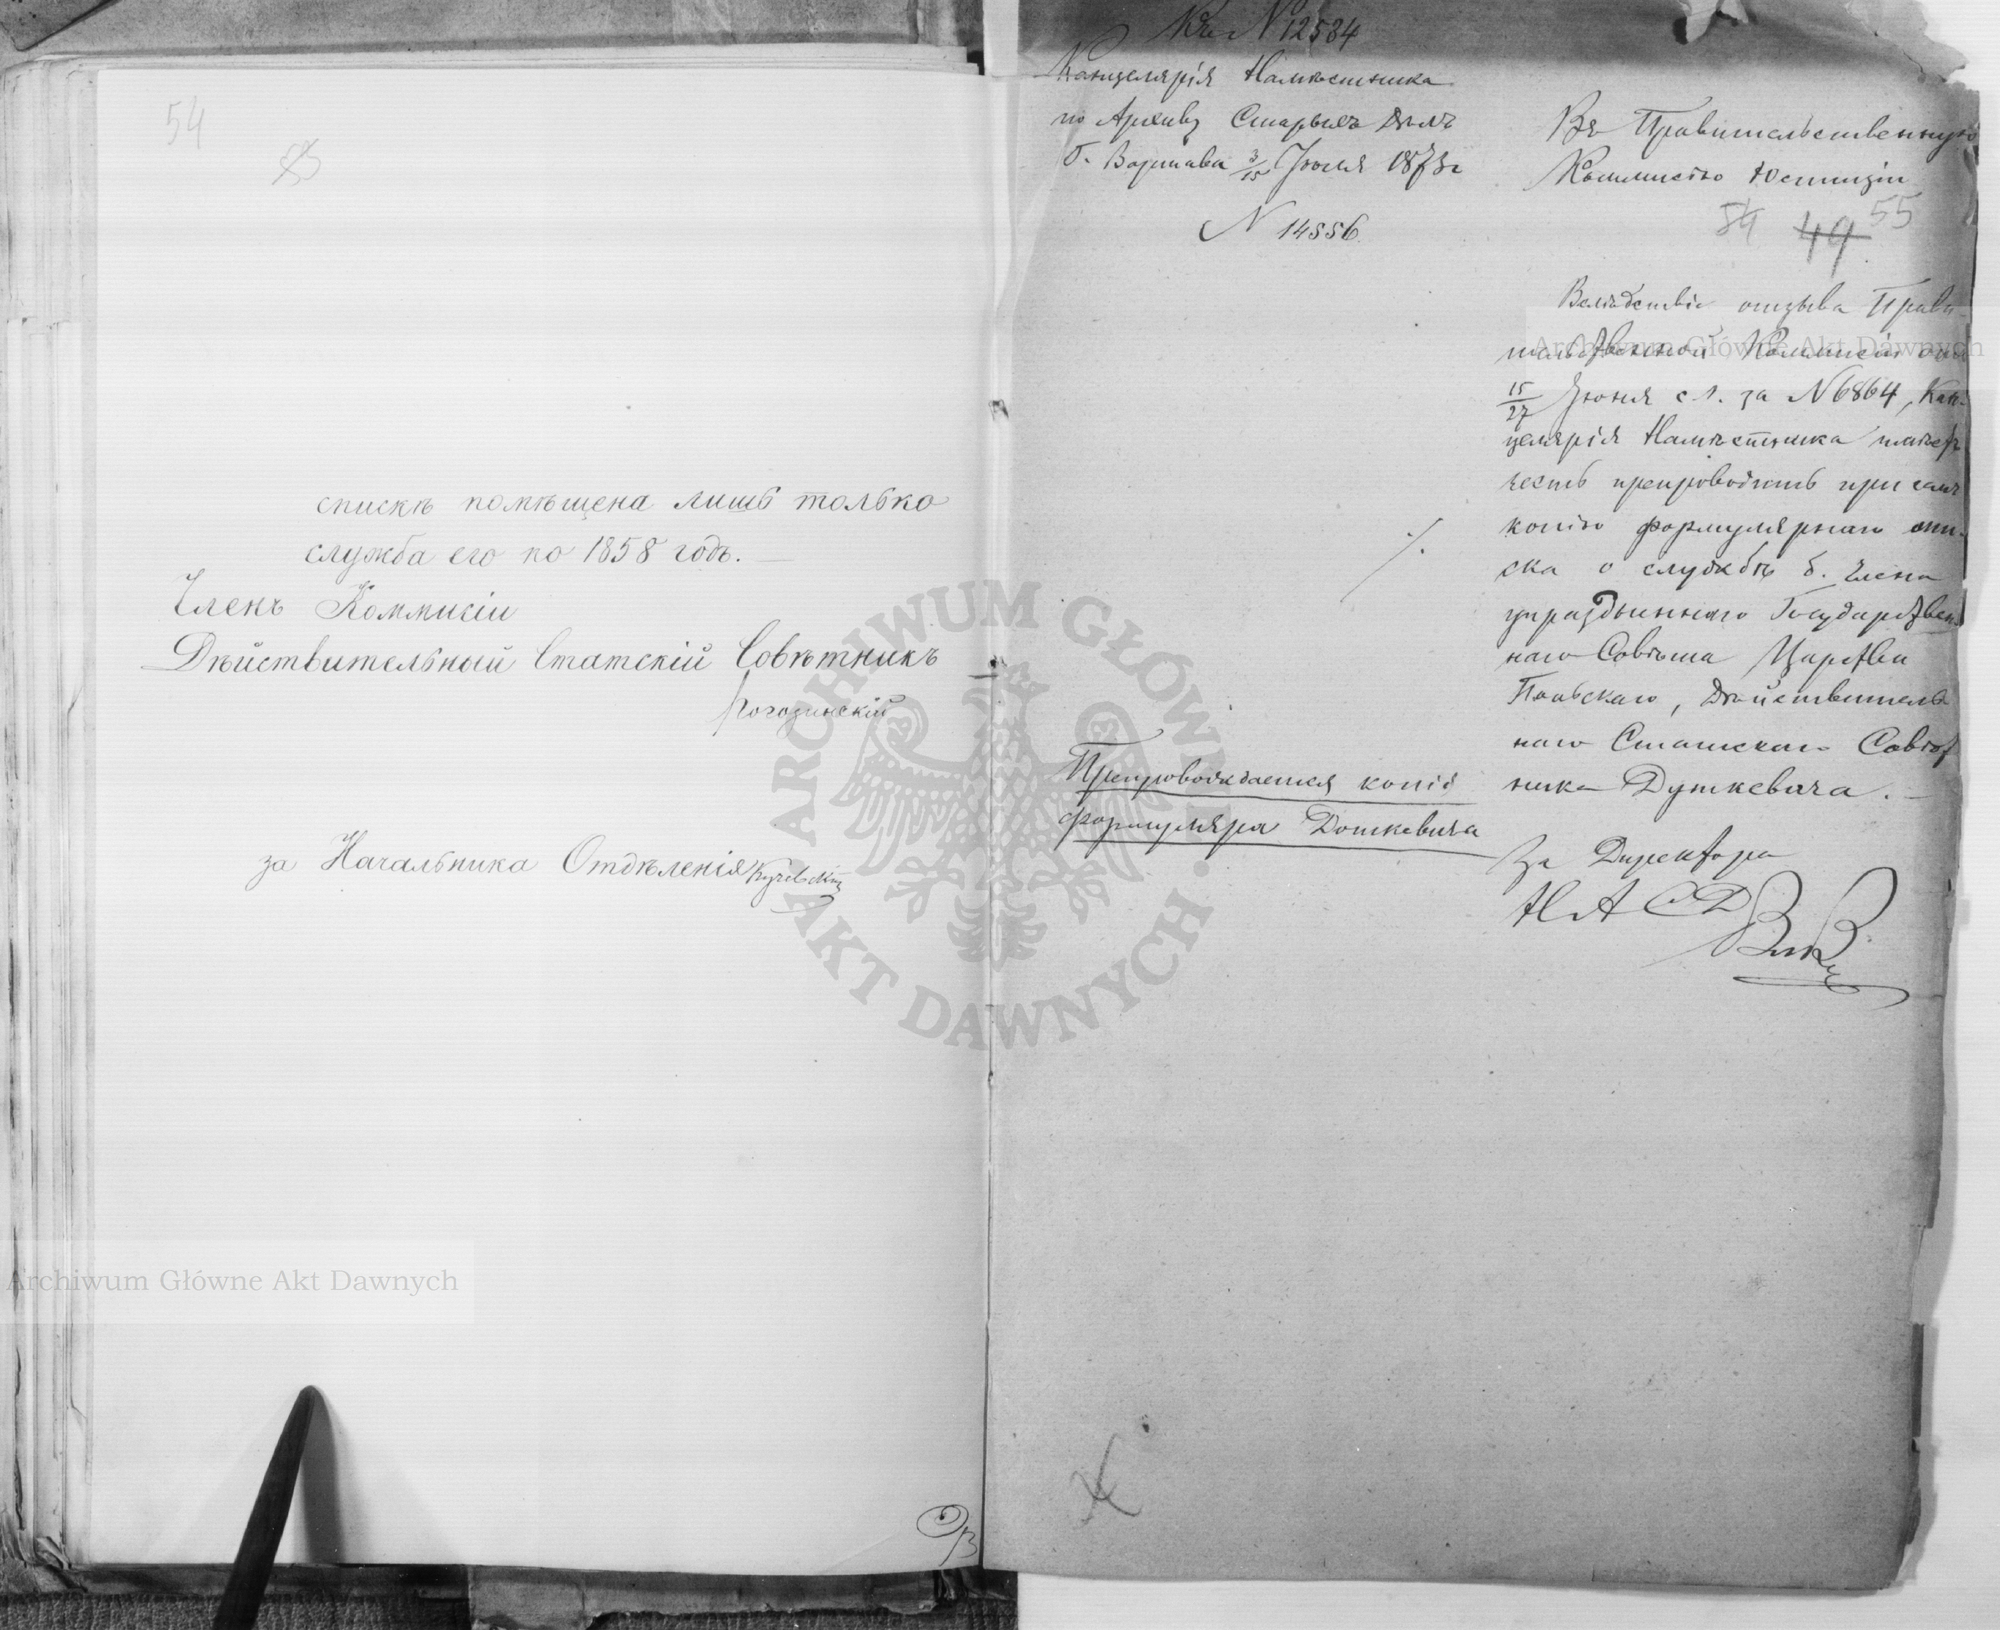 54
53
спискѣ помѣщена лишь только
служба его по 1858 годъ. —
Членъ Коммисіи
Дѣйствительный Статскій Совѣтникъ
за Начальника Отдѣленія
Къ N 12584
Канцелярія Намѣстника
по Архиву Старыхъ Дѣлъ
Г. Варшава 3/15 Іюля 1873 г
N 14556
Препровождается копія
формуляра Дуткевича
Въ Правительственную
Коммисію Юстиціи
54 49 55
Вслѣдствіе отзыва Прави-
тельственной Коммисіи отъ
15/27 Іюня с. г. за N 6864, Кан-
целярія Намѣстника имѣетъ
честь препроводить при семъ
копію формулярнаго спи-
ска о службѣ б. Члена
упраздненнаго Государствен-
наго Совѣта Царства
Польскаго, Дѣйствитель
наго Статскаго Совѣт
ника Дуткевича. —
За Директора
ARCHIWUM GŁÓWNE AKT DAWNYCH
Archiwum Główne Akt Dawnych
Archiwum Główne Akt Dawnych